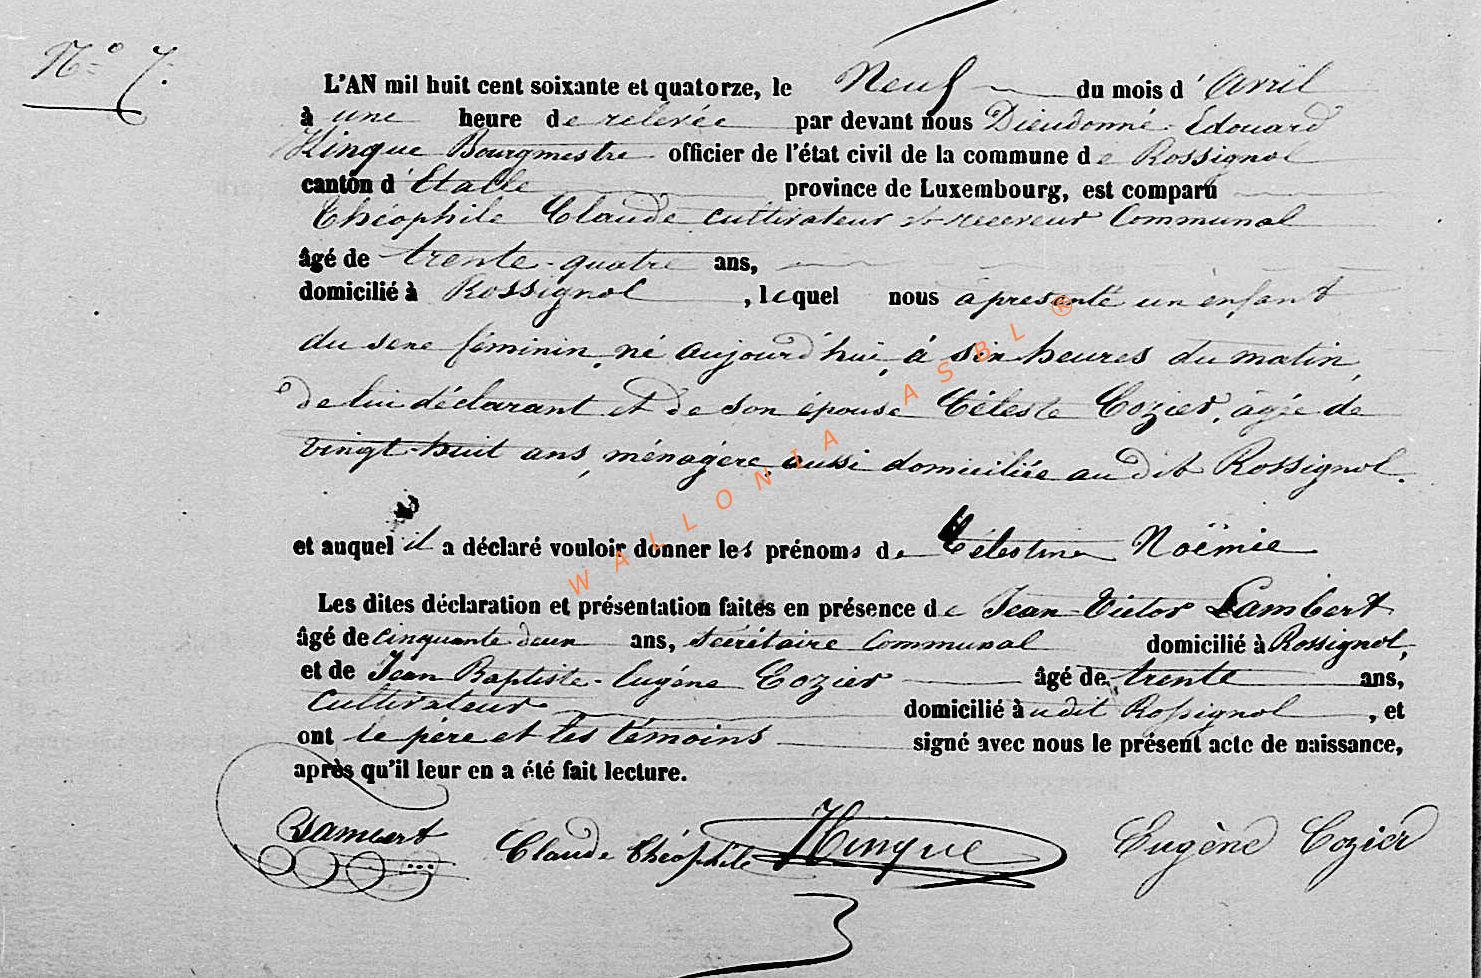 N° 7.
L'AN mil huit cent soixante et quatorze, le Neuf du mois d'Avril
à une heure de relevée par devant nous Dieudonné Edouard
Hinque Bourgmestre officier de l'état civil de la commune de Rossignol
canton d'Etalle province de Luxembourg, est comparu
Théophile Claude cultivateur et receveur Communal
âgé de trente-quatre ans,
domicilié à Rossignol, lequel nous a présenté un enfant
du sexe féminin, né aujourd'hui, à six heures du matin,
de lui déclarant et de son épouse Céleste Cozier, âgée de
vingt-huit ans, ménagère, aussi domiciliée au dit Rossignol.
et auquel il a déclaré vouloir donner les prénoms de Célestine Noëmie
Les dites déclaration et présentation faites en présence de Jean-Victor Lambert
âgé de cinquante deux ans, secrétaire Communal domicilié à Rossignol,
et de Jean Baptiste-Eugène Cozier âgé de trente ans,
Cultivateur domicilié audit Rossignol, et
ont le père et les témoins signé avec nous le présent acte de naissance,
après qu'il leur en a été fait lecture.
Lambert Claude Théophile Hinque Eugène Cozier
WALLONIA ASBL ®